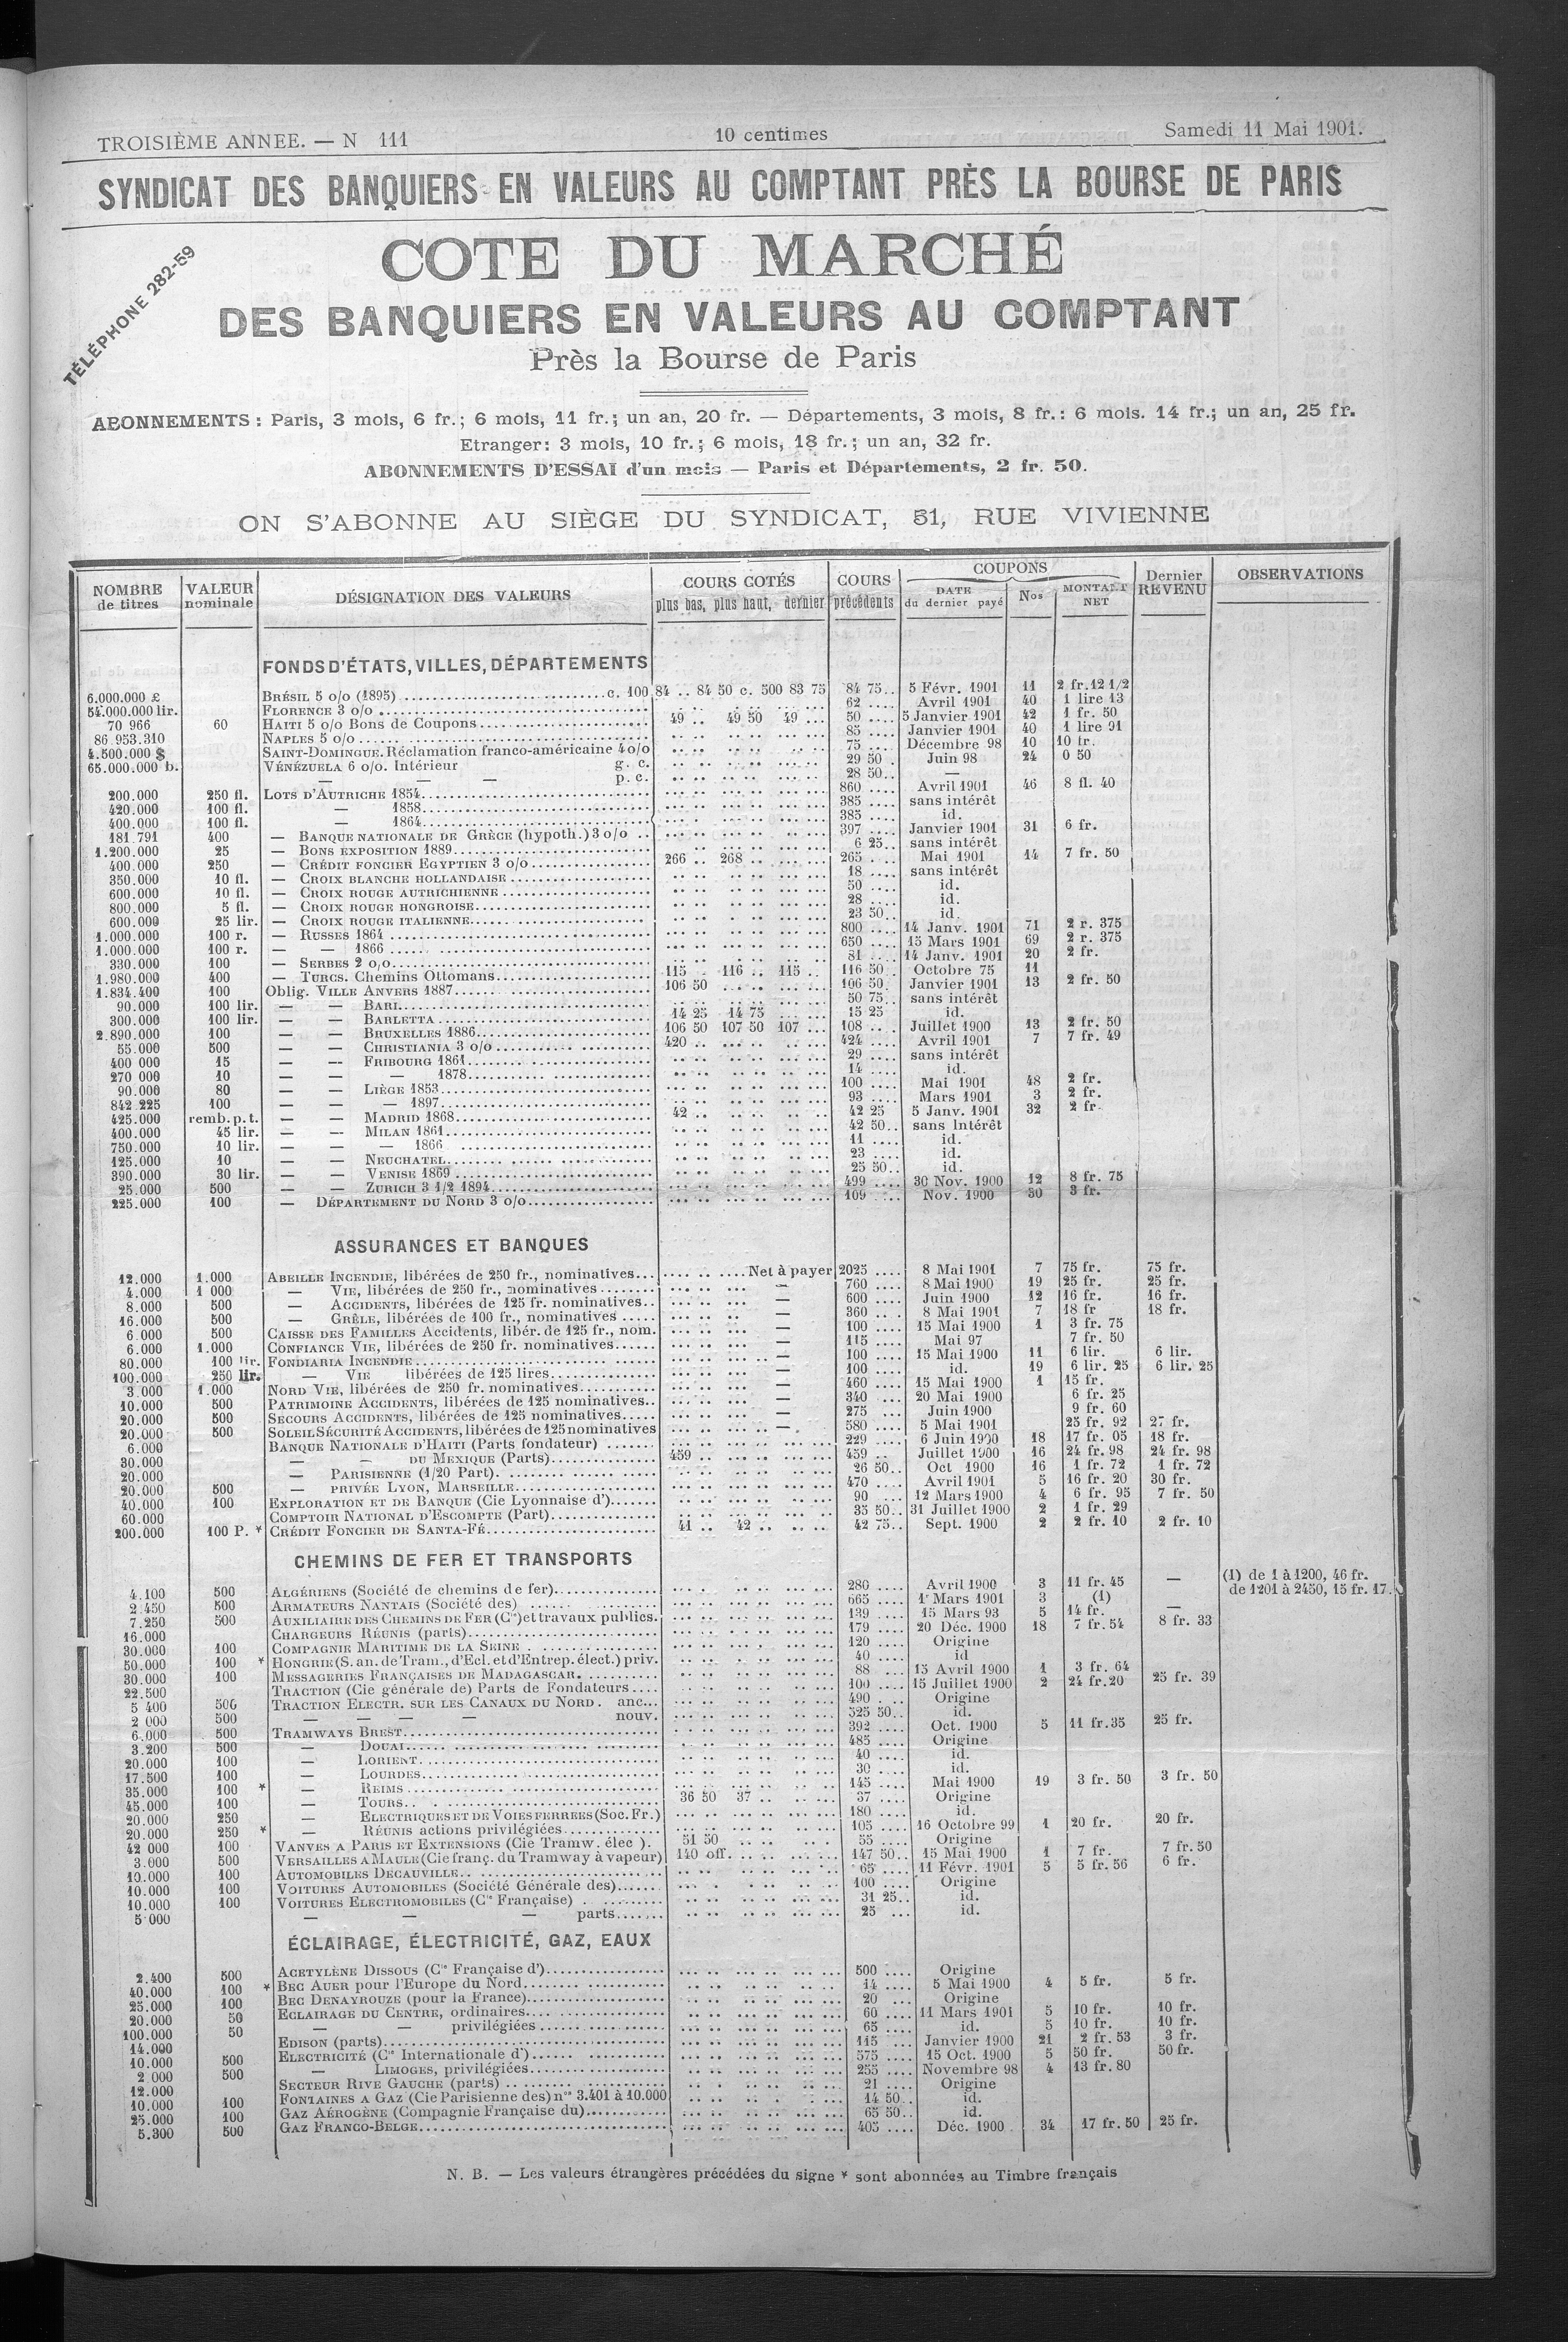 TROISIÈME ANNEE. — N 111 10 centimes Samedi 11 Mai 1901.
SYNDICAT DES BANQUIERS EN VALEURS AU COMPTANT PRÈS LA BOURSE DE PARIS
TÉLÉPHONE 282-59
COTE DU MARCHÉ
DES BANQUIERS EN VALEURS AU COMPTANT
Près la Bourse de Paris
ABONNEMENTS : Paris, 3 mois, 6 fr.; 6 mois, 11 fr.; un an, 20 fr. — Départements, 3 mois, 8 fr.: 6 mois. 14 fr.; un an, 25 fr.
Etranger: 3 mois, 10 fr.; 6 mois, 18 fr.; un an, 32 fr.
ABONNEMENTS D'ESSAI d'un mois — Paris et Départements, 2 fr. 50.
ON S'ABONNE AU SIÈGE DU SYNDICAT, 31, RUE VIVIENNE
NOMBRE de titres VALEUR nominale DÉSIGNATION DES VALEURS COURS COTÉS plus bas, plus haut, dernier COURS précédents COUPONS DATE du dernier payé Nos MONTANT NET Dernier REVENU OBSERVATIONS
FONDS D'ÉTATS, VILLES, DÉPARTEMENTS
6.000.000 £ BRÉSIL 5 o/o (1895) c. 100 84 .. 84 50 c. 500 83 75 84 75 5 Févr. 1901 11 2 fr. 12 1/2
54.000.000 lir. FLORENCE 3 o/o 62 Avril 1901 40 1 lire 13
70 966 60 HAITI 5 o/o Bons de Coupons 49 .. 49 50 49 ... 50 5 Janvier 1901 42 1 fr. 50
86.953.310 NAPLES 5 o/o 85 Janvier 1901 40 1 lire 91
4.500.000 $ SAINT-DOMINGUE. Réclamation franco-américaine 4o/o 75 Décembre 98 10 10 fr.
65.000.000 b. VÉNÉZUELA 6 o/o. Intérieur g. c. 29 50 Juin 98 24 0 50
— — — p. c. 28 50 —
200.000 250 fl. LOTS D'AUTRICHE 1854 860 Avril 1901 46 8 fl. 40
420.000 100 fl. — 1858 385 sans intérêt
400.000 100 fl. — 1864 385 id.
181 791 400 — BANQUE NATIONALE DE GRÈCE (hypoth.) 3 o/o 397 Janvier 1901 31 6 fr.
1.200.000 25 — BONS EXPOSITION 1889 6 25 sans intérêt
400.000 250 — CRÉDIT FONCIER EGYPTIEN 3 o/o 266 .. 268 .. 265 Mai 1901 14 7 fr. 50
350.000 10 fl. — CROIX BLANCHE HOLLANDAISE 18 sans intérêt
600.000 10 fl. — CROIX ROUGE AUTRICHIENNE 50 id.
800.000 5 fl. — CROIX ROUGE HONGROISE 28 id.
600.000 25 lir. — CROIX ROUGE ITALIENNE 23 50 id.
1.000.000 100 r. — RUSSES 1864 800 14 Janv. 1901 71 2 r. 375
1.000.000 100 r. — — 1866 650 15 Mars 1901 69 2 r. 375
330.000 100 — SERBES 2 o/o 81 14 Janv. 1901 20 2 fr.
1.980.000 400 — TURCS. Chemins Ottomans 115 .. 116 .. 115 .. 116 50 Octobre 75 11
1.834.400 100 Oblig. VILLE ANVERS 1887 106 50 106 50 Janvier 1901 13 2 fr. 50
90.000 100 lir. — — BARI 50 75 sans intérêt
300.000 100 lir. — — BARLETTA 14 25 14 75 15 25 id.
2.890.000 100 — — BRUXELLES 1886 106 50 107 50 107 ... 108 Juillet 1900 13 2 fr. 50
55.000 500 — — CHRISTIANIA 3 o/o 420 424 Avril 1901 7 7 fr. 49
400 000 15 — — FRIBOURG 1861 29 sans intérêt
270 000 10 — — — 1878 14 id.
90.000 80 — — LIÈGE 1853 100 Mai 1901 48 2 fr.
842 225 100 — — — 1897 93 Mars 1901 3 2 fr.
425.000 remb. p. t. — — MADRID 1868 42 .. 42 25 5 Janv. 1901 32 2 fr.
400.000 45 lir. — — MILAN 1861 42 50 sans Intérêt
750.000 10 lir. — — — 1866 11 id.
125.000 10 — — NEUCHATEL 23 id.
390.000 30 lir. — — VENISE 1869 25 50 id.
25.000 500 — — ZURICH 3 1/2 1894 499 30 Nov. 1900 12 8 fr. 75
225.000 100 — DÉPARTEMENT DU NORD 3 o/o 109 Nov. 1900 30 3 fr.
ASSURANCES ET BANQUES
12.000 1.000 ABEILLE INCENDIE, libérées de 250 fr., nominatives Net à payer 2025 8 Mai 1901 7 75 fr. 75 fr.
4.000 1 000 — VIE, libérées de 250 fr., nominatives — 760 8 Mai 1900 19 25 fr. 25 fr.
8.000 500 — ACCIDENTS, libérées de 125 fr. nominatives — 600 Juin 1900 12 16 fr. 16 fr.
16.000 500 — GRÊLE, libérées de 100 fr., nominatives — 360 8 Mai 1901 7 18 fr 18 fr.
6.000 500 CAISSE DES FAMILLES Accidents, libér. de 125 fr., nom. — 100 15 Mai 1900 1 3 fr. 75
6.000 1.000 CONFIANCE VIE, libérées de 250 fr. nominatives — 115 Mai 97 7 fr. 50
80.000 100 lir. FONDIARIA INCENDIE — 100 15 Mai 1900 11 6 lir. 6 lir.
100.000 250 lir. — VIE libérées de 125 lires — 100 id. 19 6 lir. 25 6 lir. 25
3.000 1.000 NORD VIE, libérées de 250 fr. nominatives — 460 15 Mai 1900 1 15 fr.
10.000 500 PATRIMOINE ACCIDENTS, libérées de 125 nominatives — 340 20 Mai 1900 6 fr. 25
20.000 500 SECOURS ACCIDENTS, libérées de 125 nominatives — 275 Juin 1900 9 fr. 60
20.000 500 SOLEIL SÉCURITÉ ACCIDENTS, libérées de 125 nominatives — 580 5 Mai 1901 25 fr. 92 27 fr.
6.000 BANQUE NATIONALE D'HAITI (Parts fondateur) 229 6 Juin 1900 18 17 fr. 05 18 fr.
30.000 — — DU MEXIQUE (Parts) 459 .. 459 Juillet 1900 16 24 fr. 98 24 fr. 98
20.000 — PARISIENNE (1/20 Part) 26 50 Oct 1900 16 1 fr. 72 1 fr. 72
20.000 500 — PRIVÉE LYON, MARSEILLE 470 Avril 1901 5 16 fr. 20 30 fr.
40.000 100 EXPLORATION ET DE BANQUE (Cie Lyonnaise d') 90 12 Mars 1900 4 6 fr. 95 7 fr. 50
60.000 COMPTOIR NATIONAL D'ESCOMPTE (Part) 35 50 31 Juillet 1900 2 1 fr. 29
200.000 100 P. * CRÉDIT FONCIER DE SANTA-FÉ 41 .. 42 .. 42 75 Sept. 1900 2 2 fr. 10 2 fr. 10
CHEMINS DE FER ET TRANSPORTS
4.100 500 ALGÉRIENS (Société de chemins de fer) 280 Avril 1900 3 11 fr. 45 — (1) de 1 à 1200, 46 fr.
2.450 500 ARMATEURS NANTAIS (Société des) 665 1r Mars 1901 3 (1) de 1201 à 2450, 15 fr. 17.
7.250 500 AUXILIAIRE DES CHEMINS DE FER (Cie) et travaux publics. 139 15 Mars 93 5 14 fr. —
16.000 CHARGEURS RÉUNIS (parts) 179 20 Déc. 1900 18 7 fr. 54 8 fr. 33
30.000 100 COMPAGNIE MARITIME DE LA SEINE 120 Origine
50.000 100 * HONGRIE (S. an. de Tram., d'Ecl. et d'Entrep. élect.) priv. 40 id
30.000 100 MESSAGERIES FRANÇAISES DE MADAGASCAR 88 15 Avril 1900 1 3 fr. 64
22.500 TRACTION (Cie générale de) Parts de Fondateurs 100 15 Juillet 1900 2 24 fr. 20 25 fr. 39
5 400 500 TRACTION ELECTR. SUR LES CANAUX DU NORD. anc... 490 Origine
2 000 500 — — — — nouv. 525 50 id.
6.000 500 TRAMWAYS BREST 392 Oct. 1900 5 11 fr. 35 25 fr.
3.200 500 — DOUAI 485 Origine
20.000 100 — LORIENT 40 id.
17.500 100 — LOURDES 30 id.
35.000 100 * — REIMS 145 Mai 1900 19 3 fr. 50 3 fr. 50
45.000 100 — TOURS 36 50 37 .. 37 Origine
20.000 250 — ELECTRIQUES ET DE VOIES FERREES (Soc. Fr.) 180 id.
20.000 250 * — RÉUNIS actions privilégiées 105 16 Octobre 99 1 20 fr. 20 fr.
42 000 100 VANVES A PARIS ET EXTENSIONS (Cie Tramw. élec ). 51 50 55 Origine
3.000 500 VERSAILLES A MAULE (Cie franç. du Tramway à vapeur) 140 off. 147 50 15 Mai 1900 1 7 fr. 7 fr. 50
10.000 100 AUTOMOBILES DECAUVILLE 65 11 Févr. 1901 5 5 fr. 56 6 fr.
10.000 100 VOITURES AUTOMOBILES (Société Générale des) 100 Origine
10.000 100 VOITURES ELECTROMOBILES (Cie Française) 31 25 id.
5 000 — — — parts 25 id.
ÉCLAIRAGE, ÉLECTRICITÉ, GAZ, EAUX
2.400 500 ACETYLÈNE DISSOUS (Cie Française d') 500 Origine
40.000 100 * BEC AUER pour l'Europe du Nord 14 5 Mai 1900 4 5 fr. 5 fr.
25.000 100 BEC DENAYROUZE (pour la France) 20 Origine
20.000 50 ECLAIRAGE DU CENTRE, ordinaires 60 11 Mars 1901 5 10 fr. 10 fr.
100.000 50 — — privilégiées 65 id. 5 10 fr. 10 fr.
14.000 EDISON (parts) 115 Janvier 1900 21 2 fr. 53 3 fr.
10.000 500 ELECTRICITÉ (Cie Internationale d') 575 15 Oct. 1900 5 50 fr. 50 fr.
2 000 500 — LIMOGES, privilégiées 255 Novembre 98 4 13 fr. 80
12.000 SECTEUR RIVE GAUCHE (parts) 21 Origine
10.000 100 FONTAINES A GAZ (Cie Parisienne des) nos 3.401 à 10.000 14 50 id.
25.000 100 GAZ AÉROGÈNE (Compagnie Française du) 65 50 id.
5.300 500 GAZ FRANCO-BELGE 405 Déc. 1900 34 17 fr. 50 25 fr.
N. B. — Les valeurs étrangères précédées du signe * sont abonnées au Timbre français